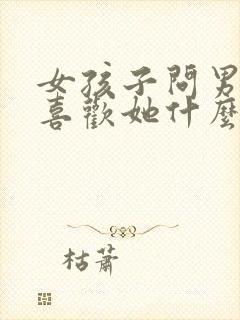 女孩子問男
喜歡她什麼
枯蕭